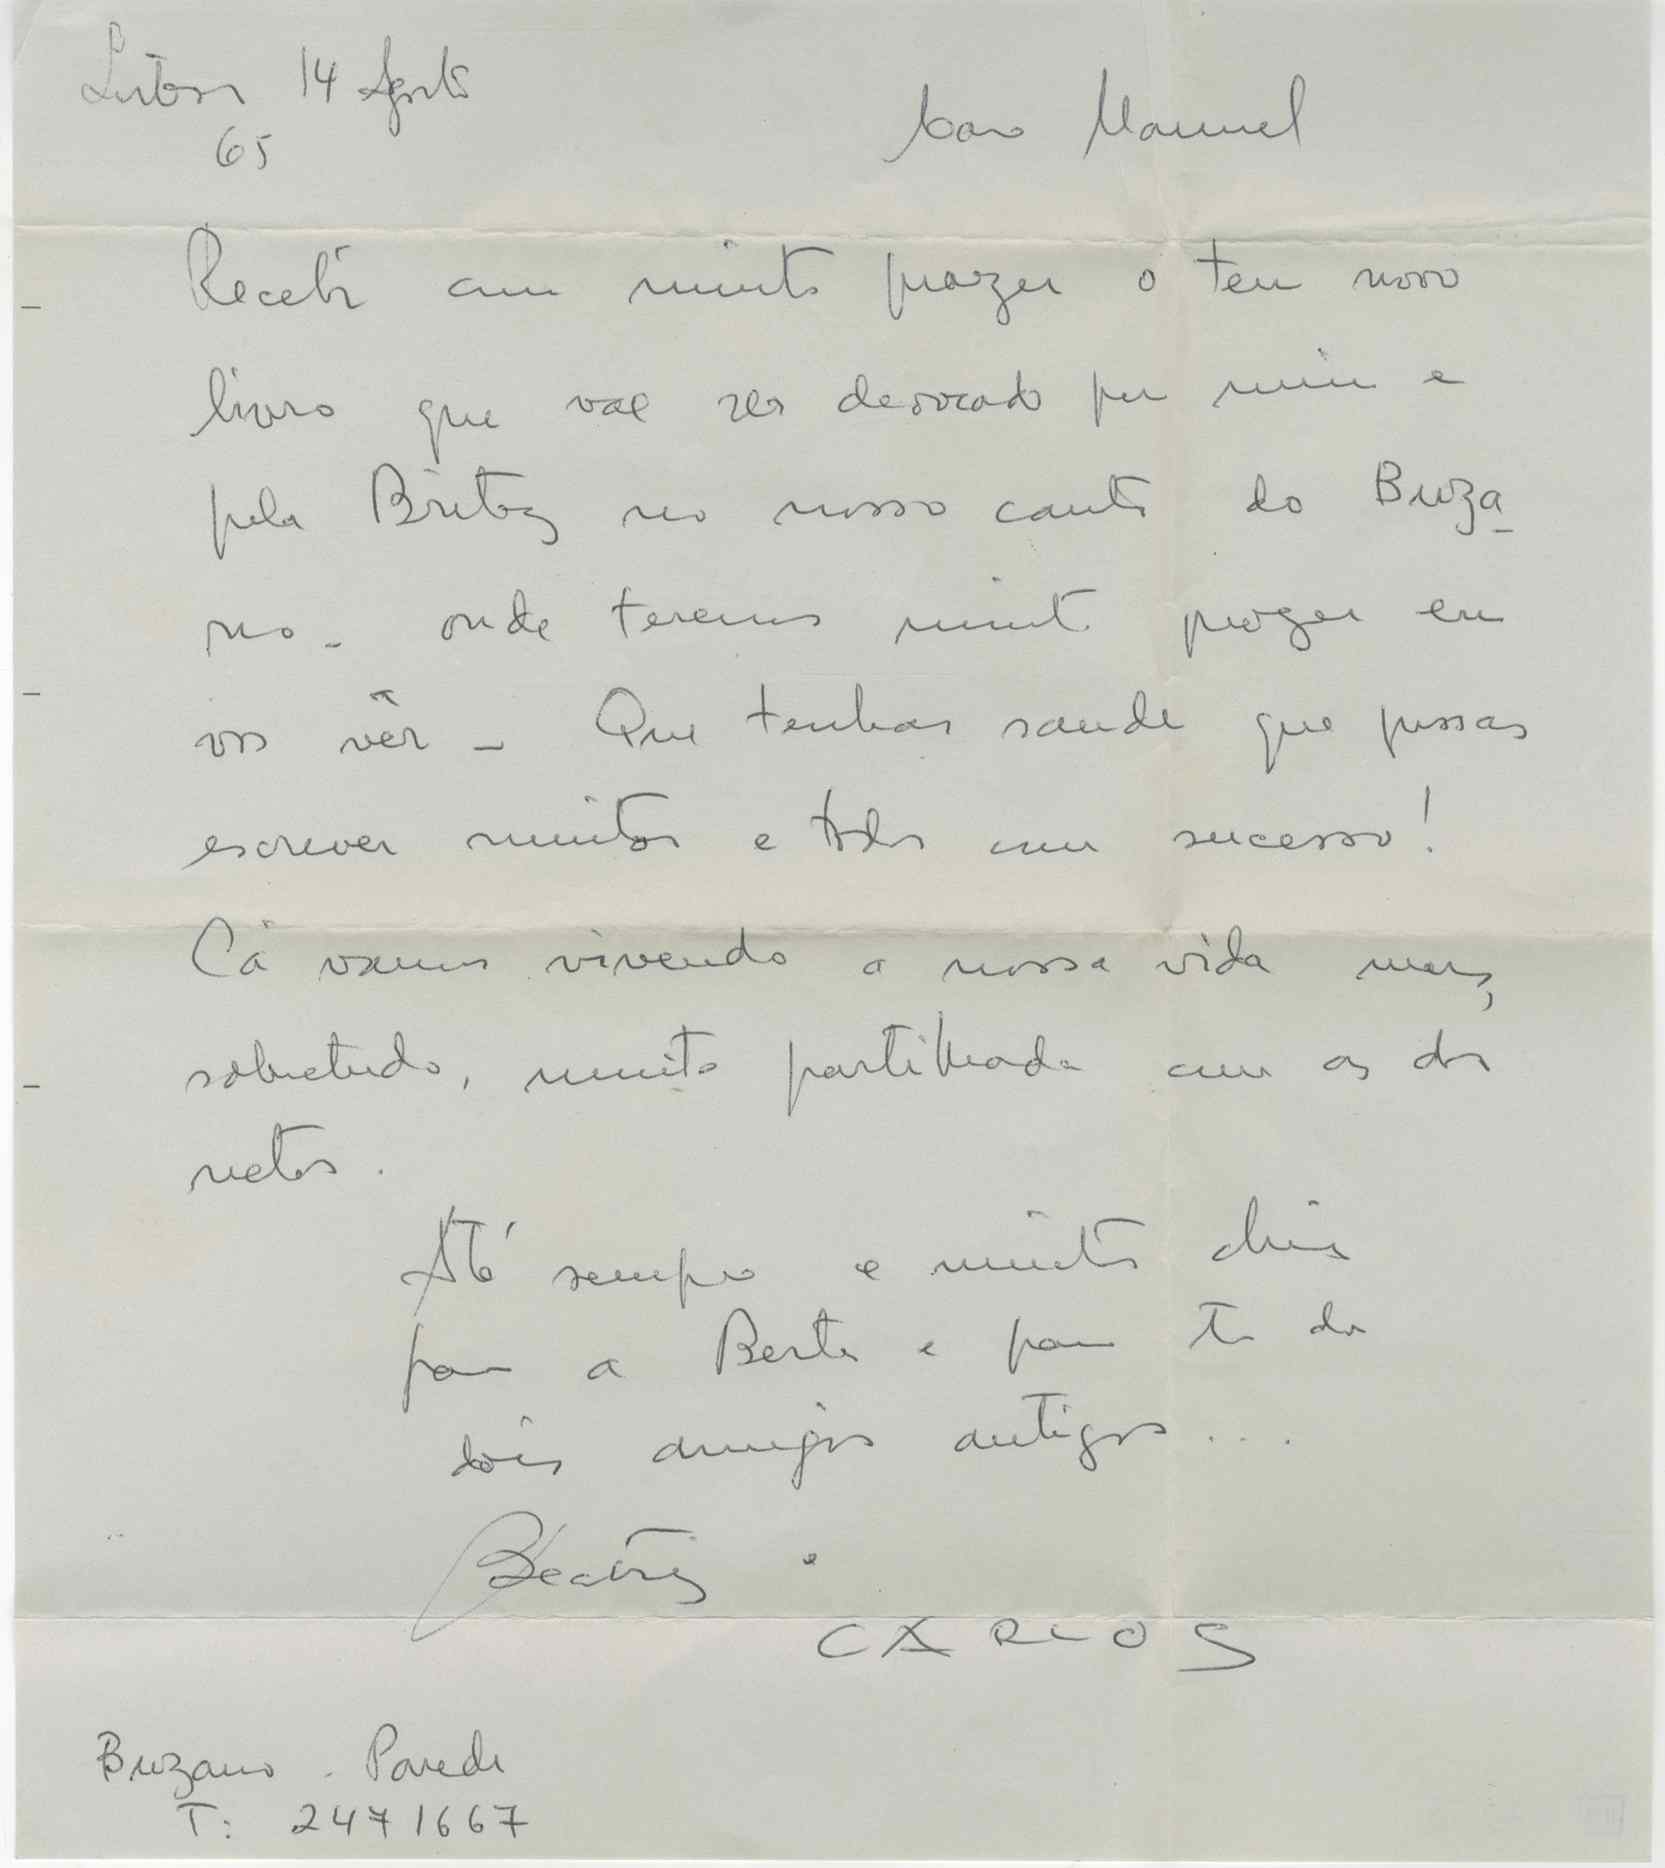 Lisboa 14 Agosto
65
Caro Manuel
Recebi com muito prazer o teu novo
livro que vae ser devorado por mim e
pela Britz no nosso canto do Buza_
no _ onde teremos muito prazer em
vos vêr _ Que tenhas saude que possas
escrever muitos e todos com sucesso!
Cá vamos vivendo a nossa vida mas,
sobretudo, muito partilhada com as dos
netos.
Até sempre e muitos
para a Berta e para ti dos
dois amigos antigos ...
Beatriz e
CARLOS
Buzano . Parede
T: 2471667